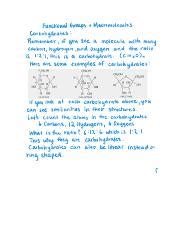 Functional Groups + Macromolecules
Carbohydrates
Remember, if you see a molecule with many
carbon, hydrogen, and oxygen and the ratio
is 1:2:1, this is a carbohydrate. (CH₂O)n.
Here are some examples of carbohydrates:
If you look at each carbohydrate above, you
can see similarities in their structures.
Let's count the atoms in the carbohydrate
6 Carbons, 12 Hydrogens, 6 Oxygens
What is the ratio? 6:12:6 which is 1:2:1
This why they are carbohydrates
Carbohydrates can also be linear instead of
ring shaped.